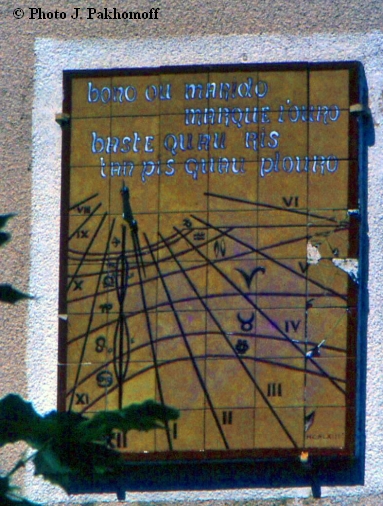 © Photo J. Pakhomoff
bono ou marrido
marque l'ouro
baste quau ris
tan pis quau plouro
VI
IX
V
X
IV
XI
III
XII
I
II